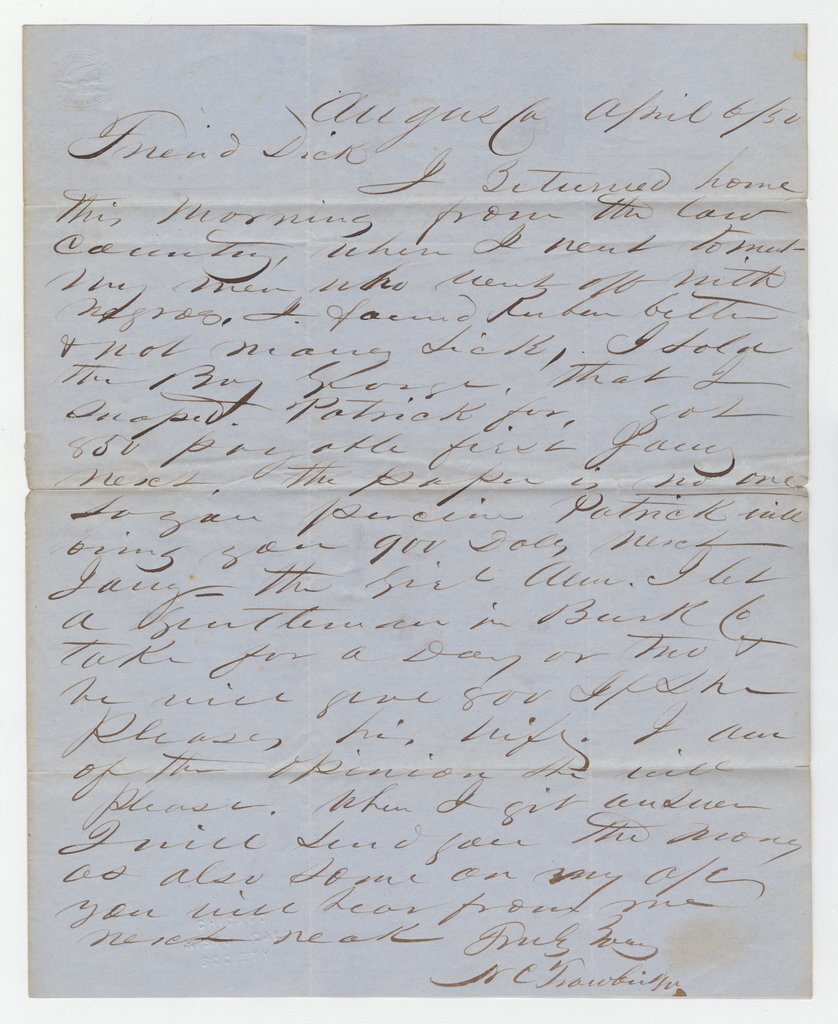 Augus Ga April 6/50
Freind Dick
I Returned home
this Morning from the low
Country, where I went to meet
My men who went off with
negros, I found Ruben better
& not many sick, I sold
the Boy George, that I
swaped Patrick for, got
850 payable first Jany
next the paper is no one
so you percieve Patrick will
bring you 900 Dols next
Jany the Girl Ann. I let
a Gentleman in Burk Co
take for a Day or two &
he will give 800 If She
Pleases his wife. I am
of the Opinion she will
please. When I git answer
I will send you the Money
as also some on my a/c
you will hear from me
next week Truly Yours
N C Trowbridge
SOCIETY